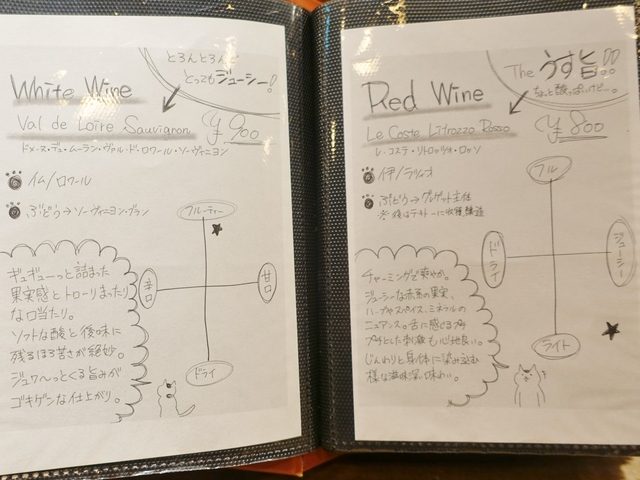 とろんとろんで
とってもジューシー!!
White Wine
Val de Loire Sauvignon
¥900
ドメーヌ・デュ・ムーラン・ヴァル・ド・ロワール・ソーヴィニヨン
ロワール
ぶどう→ソーヴィニヨン・ブラン
フルーティー
辛口
甘口
ドライ
ギュギューっと詰まった
果実感とトローリまったり
な口当たり。
ソフトな酸と後味に
残るほろ苦さが絶妙。
ジュワ〜っとくる旨みが
ゴキゲンな仕上がり。
The うす旨!!
ちょっと酸っぱいけどー。
Red Wine
Le Coste Litrozzo Rosso
¥800
レ・コステ・リトロッツォ・ロッソ
伊/ラツィオ
ぶどう→グレゲット主体
フル
ドライ
ジューシー
ライト
チャーミングで爽やか。
ジューシーな赤系の果実、
ハーブやスパイス、ミネラルの
ニュアンス。舌に感じるプチ
プチとした刺激も心地良い。
じんわりと身体に染み込む
様な滋味深い味わい。